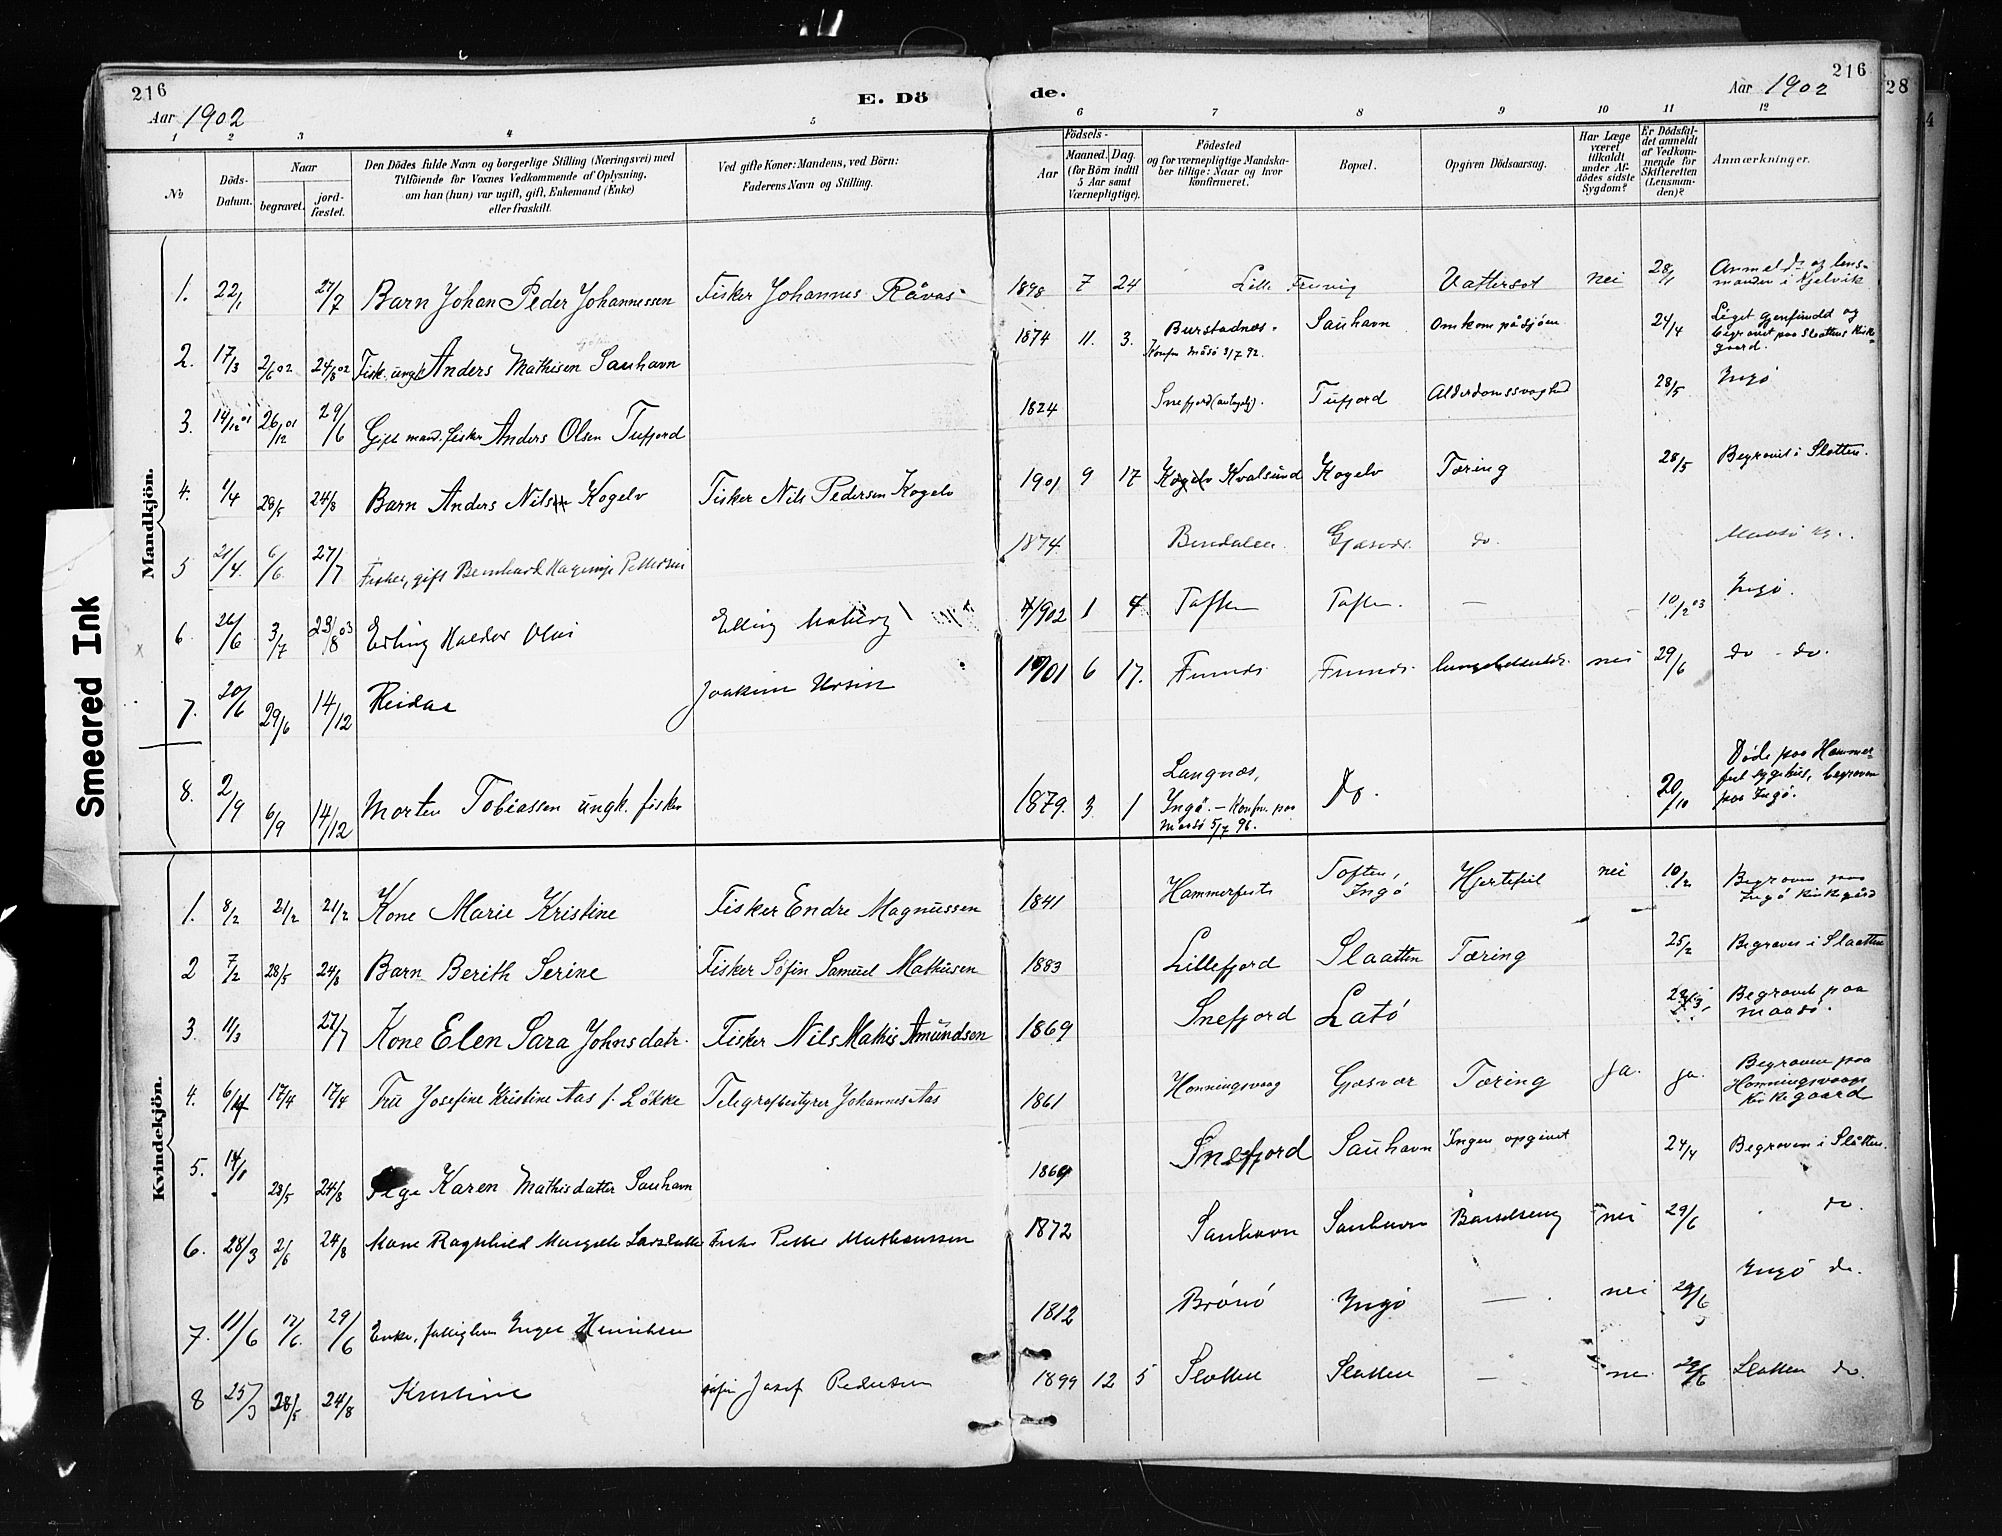 216
Aar 1902
E. Dö
de.
216
Aar 1902
28
4
1
2
3
4
5
6
7
8
9
10
11
12
№
Döds-Datum.
Naar
begravet.
jord-fæstet.
Den Dödes fulde Navn og borgerlige Stilling (Næringsvei) med
Tilföiende for Voxnes Vedkommende af Oplysning,
om han (hun) var ugift, gift, Enkemand (Enke)
eller fraskilt.
Ved gifte Koner: Mandens, ved Börn:
Faderens Navn og Stilling.
Födsels-
Aar
Maaned.
Dag.
(for Börn indtil
5 Aar samt
Værnepligtige).
Födested
og for værnepligtige Mandska-
ber tillige: Naar og hvor
konfirmeret.
Bopæl.
Opgiven Dödsaarsag.
Har Læge
været
tilkaldt
under Af-
dödes sidste
Sygdom?
Er Dödsfal-
det anmeldt
af Vedkom-
mende for
Skifteretten
(Lensman-
den)?
Anmærkninger.
Smeared Ink
Mandkjön.
1. 22/1 27/7 Barn Johan Peder Johannessen Fisker Johannes 1898 7 24 Lille Vattersot nei 28/1 Anmeldt og lens-
manden i Kjelvik
2. 17/3 2/6 02 24/8 02 Fisk. ungk. Anders Mathisen Sauhavn 1874 11. 3. Burstadnes. Sauhavn Omkom på sjøen 24/4 Liget gjenfundet og
begravet paa Slaattens kirke-
gaard.
Konfr Måsö 3/7 92.
3. 14/12 01 26/12 01 29/6 Gift mand. fisker Anders Olsen Tufjord 1824 Snefjord Tufjord Alderdomssvaghed 28/5 Ingö
4. 1/4 28/5 24/8 Barn Anders Nils Kogelv Fisker Nils Pedersen Kogelv 1901 9 17 Kogelv Kvalsund Kogelv Tæring 28/5 Begravet i Slotten.
5 21/4. 6/6. 27/7 Fisker, gift Bernhard Pettersen 1874. Gjesvær. do.
6 26/6 3/7 23/8 03 Erling Haldor 1902 1 4 Toften Toften. — 10/2 03 Ingö.
7. 20/6 29/6 14/12 Reidar Joakim Ursin 1901 6 17. nei 29/6 do - do.
8. 2/9 6/9 14/12 Morten Tobiassen ungk. fisker 1879. 3. 1 Langnæs,
Ingö. — Konfr. paa
Maasö 5/7 96. Do. 20/10 Døde paa Hammer-
fest sygehus, begraven
paa Ingö.
Kvindekjön.
1. 8/2 21/2 21/2 Kone Marie Kristine Fisker Endre Magnussen 1841 Hammerfest Toften,
Ingö Hjertefeil nei 10/2 Begraven paa
Ingö kirkegård
2 7/2 28/5 24/8 Barn Berith Serine Fisker Søfin Samuel Mathisen 1883 Lillefjord Slaatten Tæring 25/2 Begraves i Slaatten
3. 11/3 27/7 Kone Elen Sara Johnsdatr. Fisker Nils Mathis Amundsen 1869 Snefjord Latö Begravet paa
maasö.
4. 6/4 17/4 17/4 Fru Josefine Kristine Aas f. Lökke Telegrafbestyrer Johannes Aas 1861 Honningsvaag Gjesvær Tæring Ja. ja. Begraven paa
Honningsvaags
Kirkegaard
5. 28/5 24/8 Karen Mathisdatter Sauhavn 1869 Snefjord Sauhavn Ingen opgivet 24/4 Begraven i Slåtten.
6. 28/3 2/6 24/8 Kone Ragnhild Margrete Larsdatter Fisker Peter Mathiassen 1872 Sauhavn Sauhavn Barselseng nei 29/6 do.
7. 11/6 12/6. 29/6 Enke, fattiglem Inger Henriksen 1812 Brönö Ingö — nei 29/6 Ingö do.
8 25/3 28/5 24/8 Kristine Josef Pedersen 1899 12 5 Slotten Slotten — nei 29/6 Slotten do.